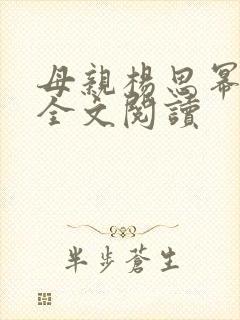 母親楊思冪
全文閱讀
半步蒼生